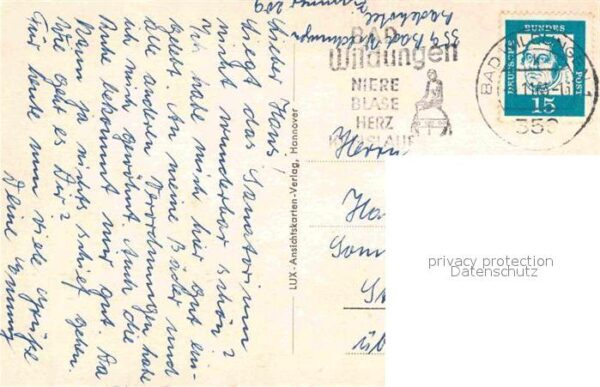 Zimmer 209
Badehotel
359 Bad Wildungen
Lieber Hans!
Liegt das Sanatorium
nicht wunderbar schön?
Ich habe mich hier gut ein-
gelebt. An meine Bäder und
alle anderen Verordnungen habe
ich mich gewöhnt. Auch die
Ruhe bekommt mir gut. Da
kann ja nichts schief gehen.
Wie geht es Dir?
Für heute nun viele Grüße
Deine
LUX-Ansichtskarten-Verlag, Hannover
BAD
Wildungen
NIERE
BLASE
HERZ
KREISLAUF
BAD
359
DEUTSCHE
BUNDES
POST
15
Herrn
privacy protection
Datenschutz